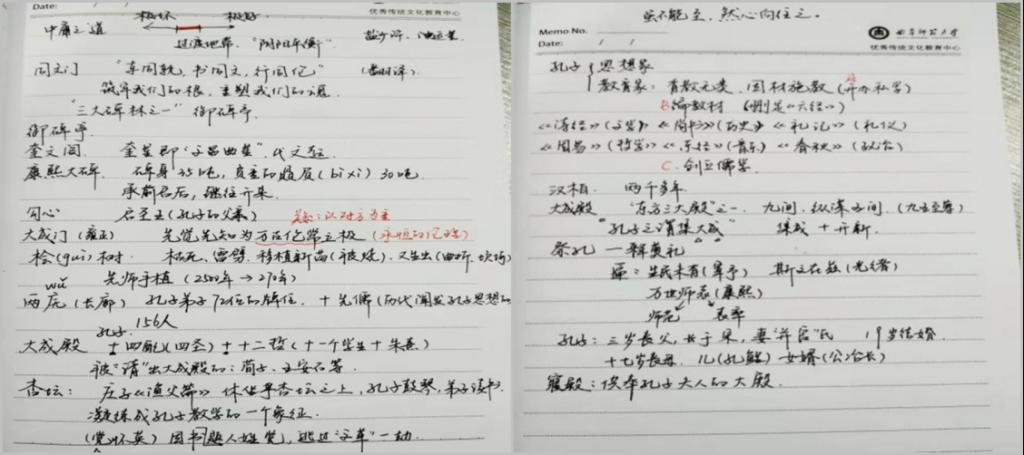 Date: / /
优秀传统文化教育中心
极坏 极好
中庸之道
过渡地带，"阴阳平衡"
同文门 "车同轨，书同文，行同伦"
筑牢我们的根，重塑我们的魂
"三大碑林之一" 御碑亭
御碑亭
奎文阁 奎星即"文昌曲星"，代文运
康熙大碑 碑身35吨，负重的赑屃(bì xì) 30吨
承前启后，继往开来
启圣王(孔子的父亲)
大成门(雍正) 先觉先知为万古伦常立极
桧(guì)树 枯死、雷劈、移植新苗(被烧)，又生出
先师手植 (2500年→270年)
wǔ
两庑(长廊) 孔子弟子72位的牌位，+先儒(历代阐发孔子思想的
156人
大成殿 孔子+四配(四圣)+十二哲(十一个学生+朱熹)
被"请"出大成殿的：荀子、王安石等
杏坛： 庄子《渔父篇》休坐乎杏坛之上，孔子鼓琴，弟子读书
凝练成孔子教学的一个象征.
(党怀英) 因书题人姓党，逃过"文革"一劫.
虽不能至，然心向往之。
Memo No.
Date: / /
曲阜师范大学
优秀传统文化教育中心
孔子 思想家
教育家：有教无类、因材施教(开办私学)
B编教材 (删定《六经》)
《诗经》(文学)《尚书》(历史)《礼记》(礼仪)
《周易》(哲学)《乐经》(音乐)《春秋》(政治)
C. 创立儒学
汉柏. 两千多年.
大成殿 "东方三大殿"之一. 九间，纵深五间. (九五至尊)
"孔子之谓集大成" 集成+开新.
祭孔—释奠礼
匾：生民未有(雍正) 斯文在兹(光绪)
万世师表(康熙)
师范 表率
孔子：三岁丧父，妻"亓官"氏 19岁结婚
十七岁丧母. 儿(孔鲤) 女婿(公冶长)
寝殿：供奉孔子夫人的大殿.